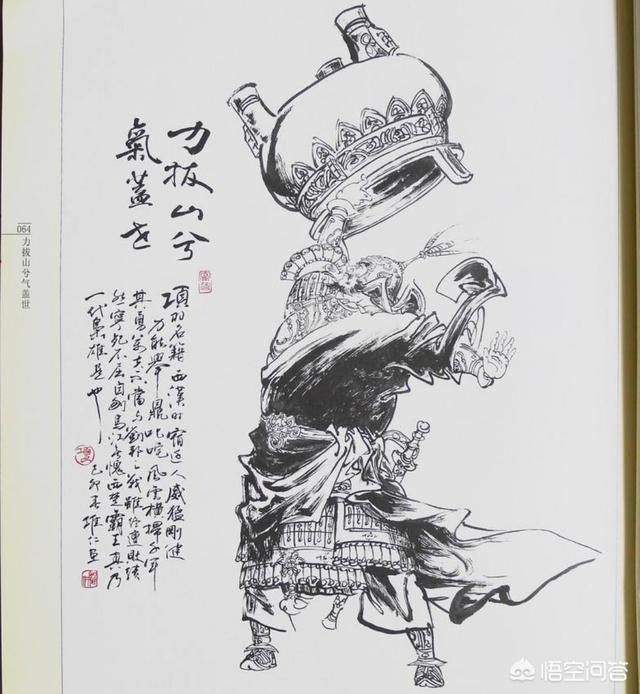 力拔山兮
氣蓋世
項羽名籍西漢时宿迁人威猛剛健
力能舉鼎叱咤風雲横掃千軍
其勇當与劉邦之戰雖終連敗績
然寧死不屈自刎烏江愧西楚霸王真乃
一代枭雄是也
己卯
064
力拔山兮气盖世
悟空问答